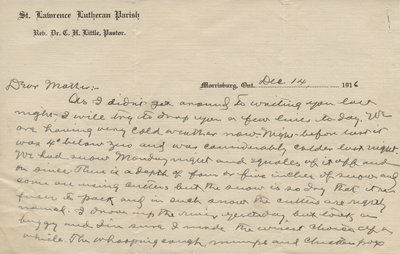 St. Lawrence Lutheran Parish
Rev. Dr. C. H. Little, Pastor.
Morrisburg, Ont. Dec 14 1916
Dear Mother:-
As I didn't get around to writing you last
night I will try to drop you a few lines to-day. We
are having very cold weather now. Night before last it
was 4° below zero and was considerably colder last night.
We had snow Monday night and squalls of it off and
on since. There is a depth of four or five inches of snow and
some are using cutters but the snow is so dry that it
to pack and in such snow the cutters are
I drove up the river yesterday but took a
buggy and I'm sure I made the wisest choice after
while. The whooping cough, mumps and chicken pox